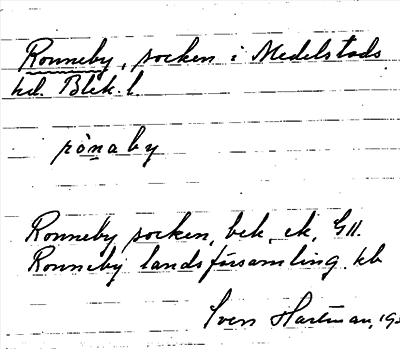 Ronneby, socken i Medelstads
hd. Blek. l.
rònaby
Ronneby socken, bek, ek, GII.
Ronneby landsförsamling. kb
Sven Hartman, 193